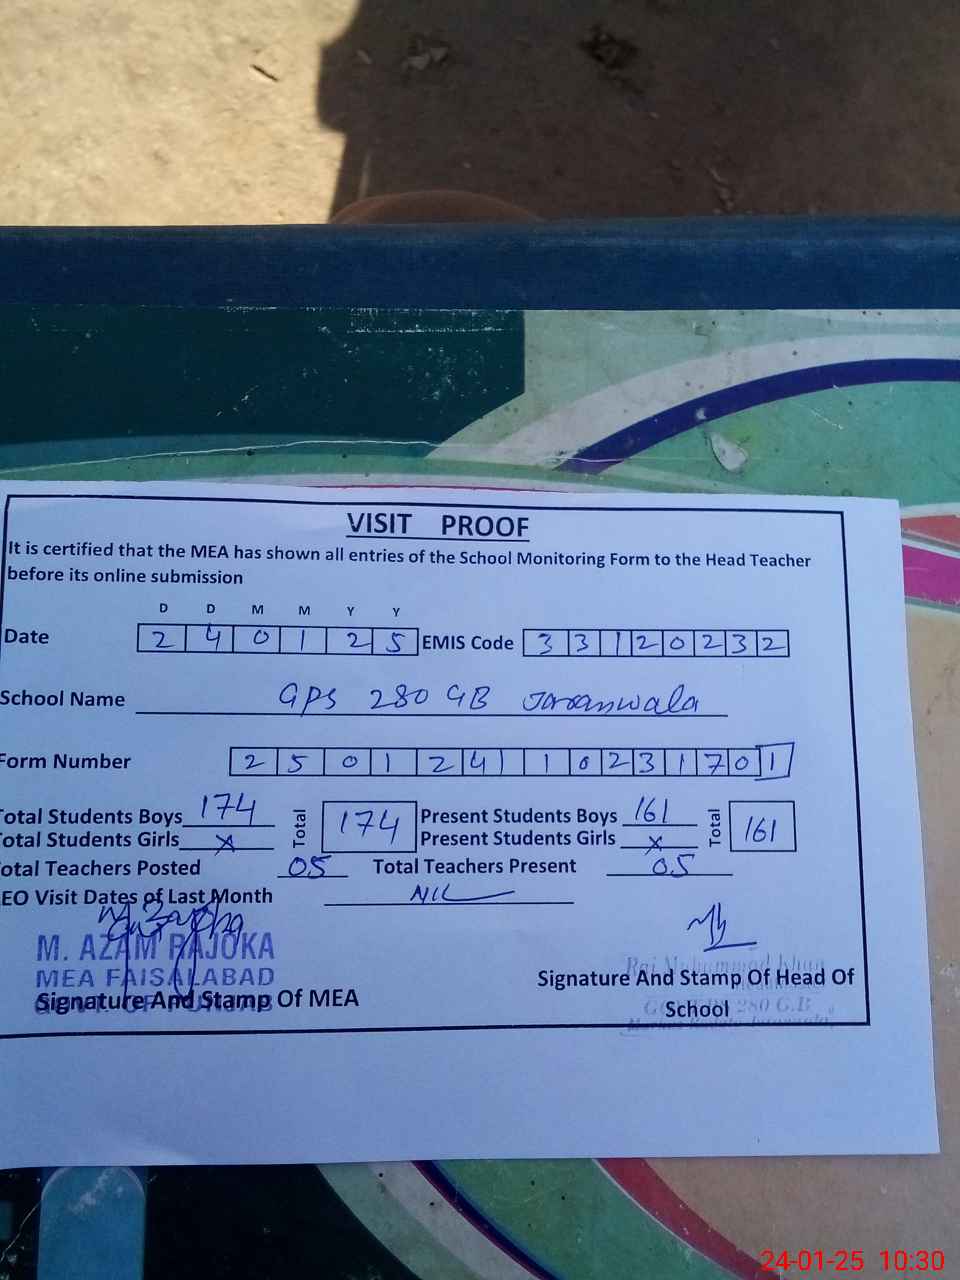 VISIT PROOF
It is certified that the MEA has shown all entries of the School Monitoring Form to the Head Teacher
before its online submission
D D M M Y Y
Date 2 4 0 1 2 5 EMIS Code 3 3 1 2 0 2 3 2
School Name GPS 280 GB Jaranwala
Form Number 2 5 0 1 2 4 1 0 2 3 1 7 0 1
Total Students Boys 174 Total 174 Present Students Boys 161 Total 161
Total Students Girls x Present Students Girls x
Total Teachers Posted 05 Total Teachers Present 05
EO Visit Dates of Last Month NIL
M. AZAM RAJOKA
MEA FAISALABAD
GOVT. OF PUNJAB
Signature And Stamp Of MEA
Signature And Stamp Of Head Of
School
280 G.B
24-01-25 10:30